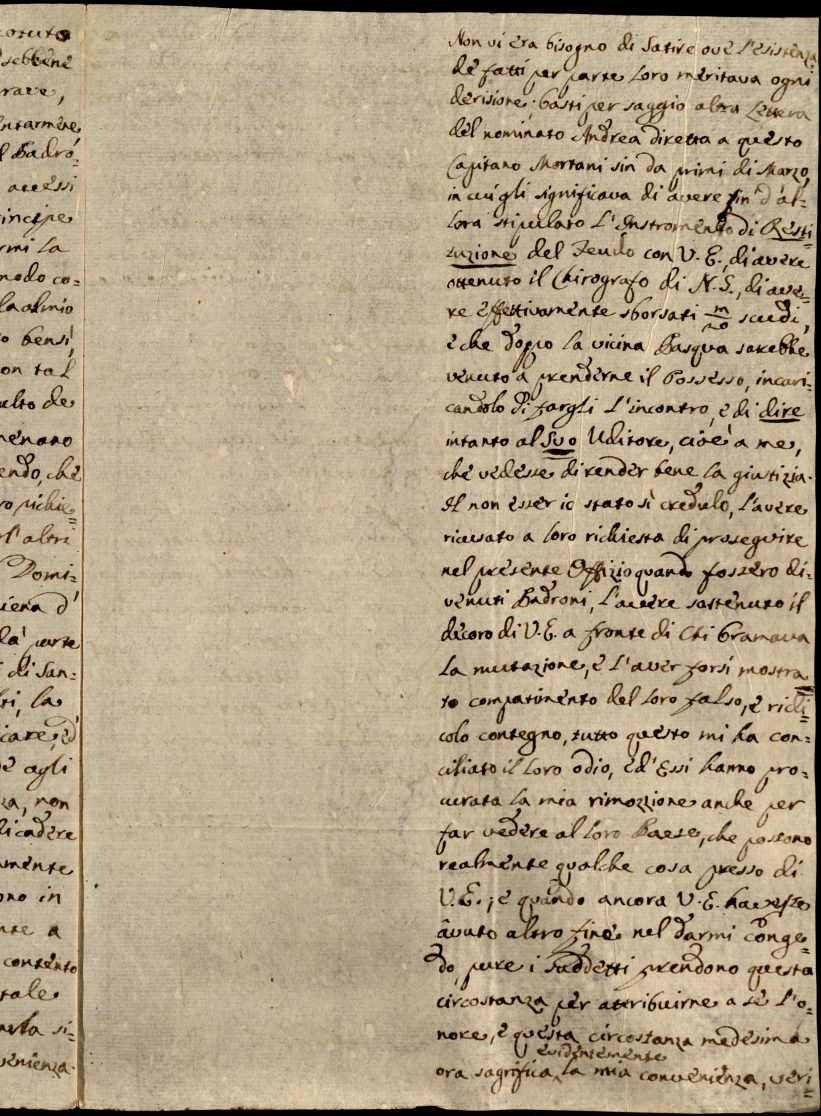 cotuto
sebbène
rave,
ntarmene
l Padro=
acessi
incipe
rmi la
modo co=
la almio
o bensi,
on tal
ulto de
menato
endo, che
ro richie=
rl'altri
Domi=
iena d'
la' parte
di San=
ti, la
icare, ed
e agli
za, non
di cadere
amente
ono in
nte a
contento
tale
arla si=
venienza.
Non vi era bisogno di Satire ove l'esistenza
de fatti per parte loro meritava ogni
derisione: basti per saggio altra Lettera
del nominato Andrea diretta a questo
Capitano Mortani sin da primi di Marzo,
in cui gli significava di avere fin d'al=
lora stipulato l'Instromento di Resti=
tuzione del Feudo con V. E., di avere
ottenuto il Chirografo di N. S., di ave=
re effettivamente sborsati m/20 scudi,
e che doppo la vicina Pasqua sarebbe
venuto a prenderne il Possesso, incari=
candolo di fargli l'incontro, e di dire
intanto al Suo Uditore, cioè a me,
che vedesse di render bene la giustizia.
Il non esser io stato sì credulo, l'avere
ricusato a loro richiesta di proseguire
nel presente Offizio quando fossero di=
venuti Padroni, l'avere sostenuto il
decoro di V. E. a fronte di chi bramava
la mutazione, e l'aver forsi mostra=
to compatimento del loro falso, e ridi=
colo contegno, tutto questo mi ha con=
ciliato il loro odio, ed'Essi hanno pro=
curata la mia rimozzione anche per
far vedere al loro Paese, che possono
realmente qualche cosa presso di
V. E.; e quando ancora V. E. havesse
avuto altro fine nel darmi conge=
do, pure i Suddetti prendono questa
circostanza per attribuirne a sè l'o=
nore, e questa circostanza medesima
evidentemente
ora sagrifica la mia convenienza, veri=